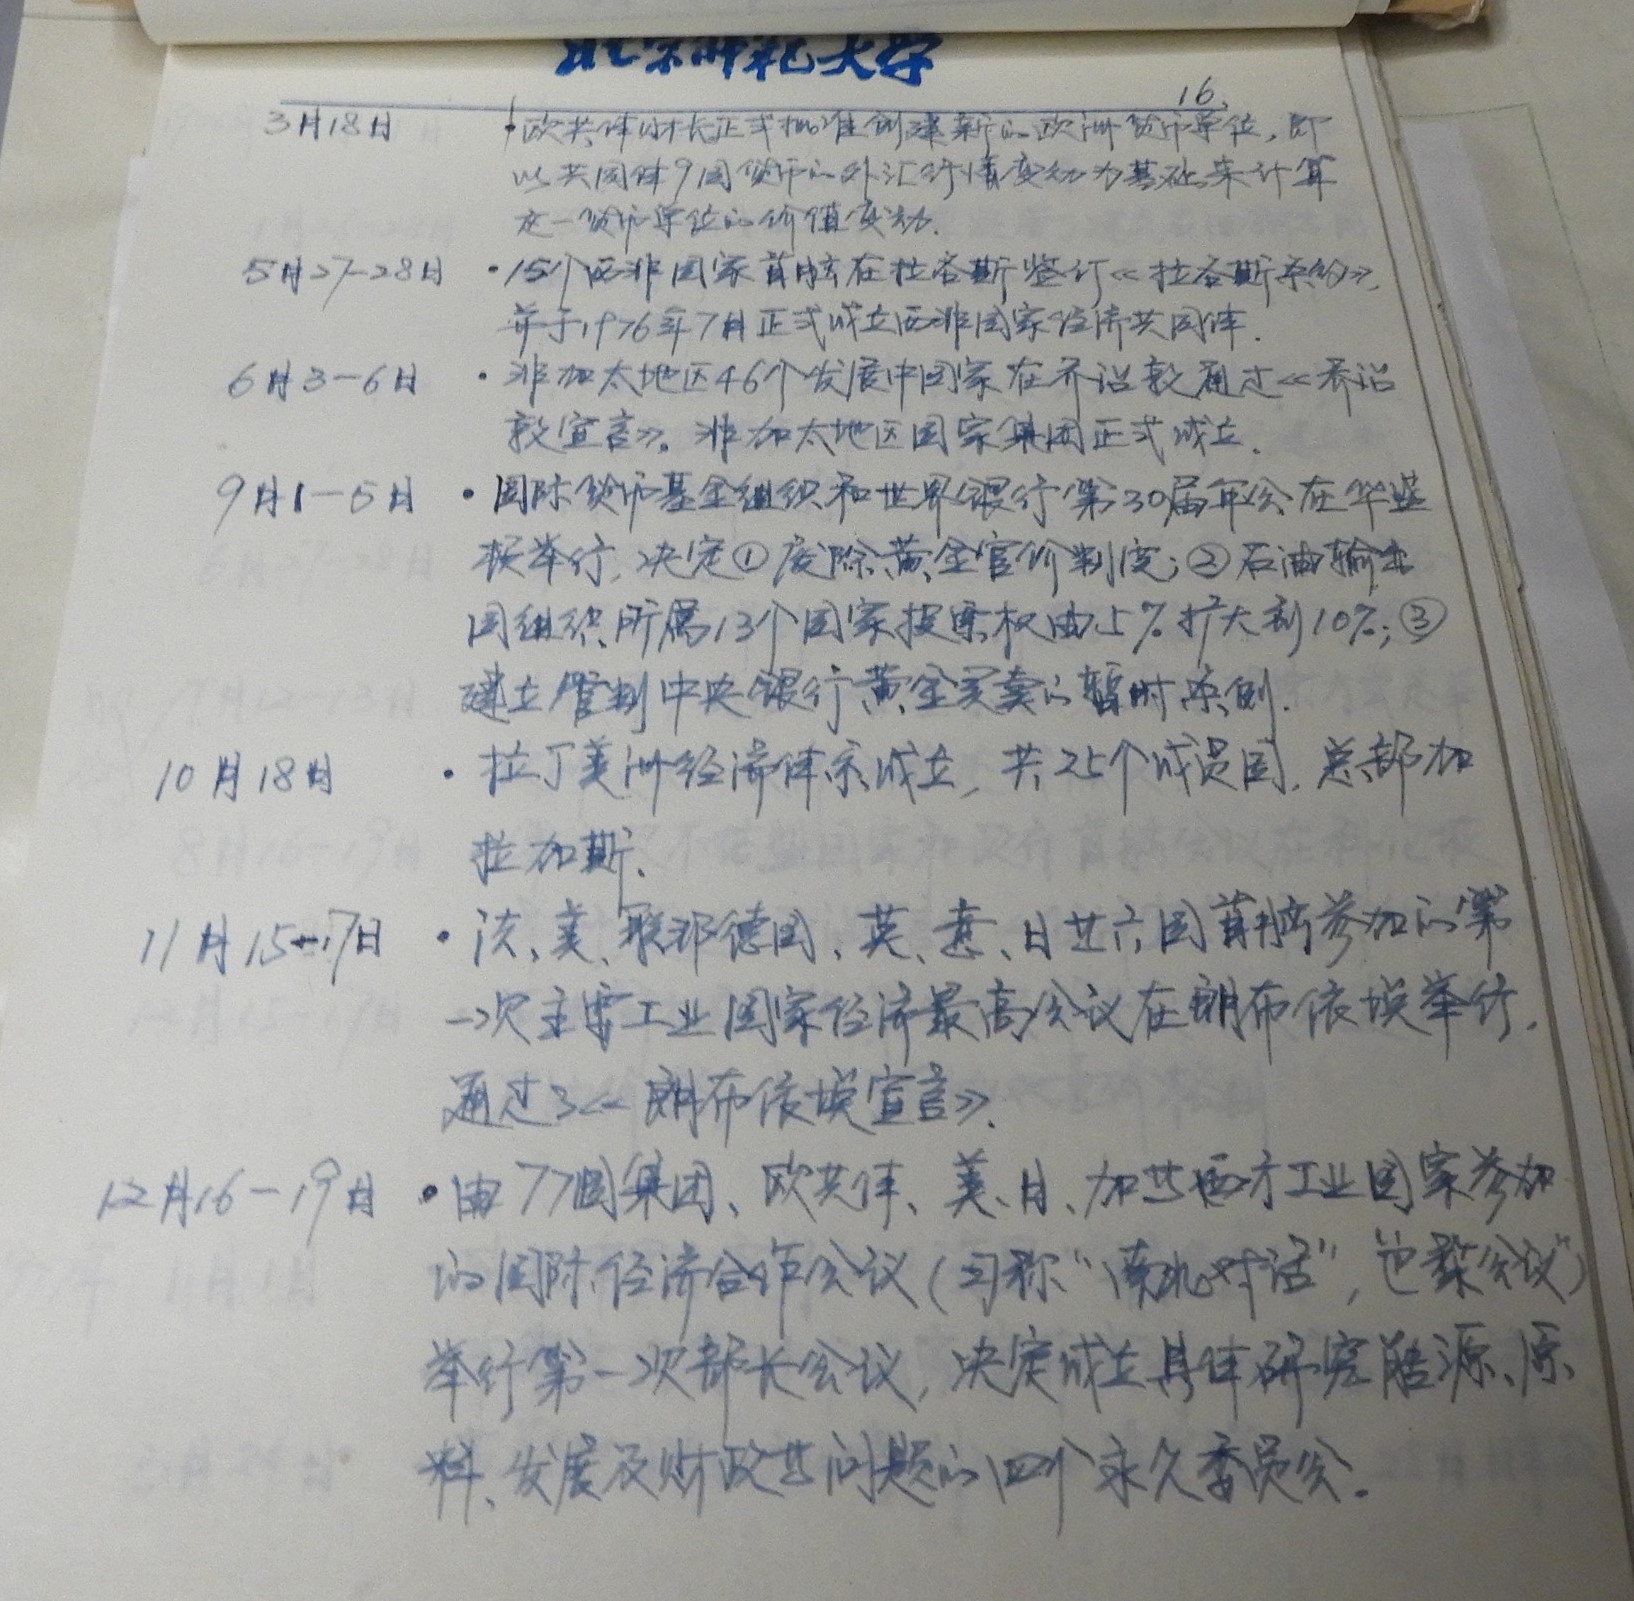 北京师范大学
16.
3月18日 ·欧共体财长正式批准创建新的欧洲货币单位,即
以共同体9国货币的外汇行情变动为基础来计算
这一货币单位的价值变动.
5月27-28日 ·15个西非国家首脑在拉各斯签订《拉各斯条约》,
并于1976年7月正式成立西非国家经济共同体.
6月3-6日 ·非加太地区46个发展中国家在乔治敦通过《乔治
敦宣言》。非加太地区国家集团正式成立.
9月1-5日 ·国际货币基金组织和世界银行第30届年会在华盛
顿举行,决定①废除黄金官价制度;②石油输出
国组织所属13个国家投票权由5%扩大到10%;③
建立管制中央银行黄金买卖的暂时条例.
10月18日 ·拉丁美洲经济体系成立,共25个成员国,总部加
拉加斯.
11月15-17日 ·法、美、联邦德国、英、意、日等六国首脑参加的第
一次主要工业国家经济最高会议在朗布依埃举行,
通过了《朗布依埃宣言》.
12月16-19日 ·由77国集团、欧共体、美、日、加等西方工业国家参加
的国际经济合作会议(习称“南北对话”,“巴黎会议”)
举行第一次部长会议,决定成立具体研究能源、原
料、发展及财政等问题的四个永久委员会.